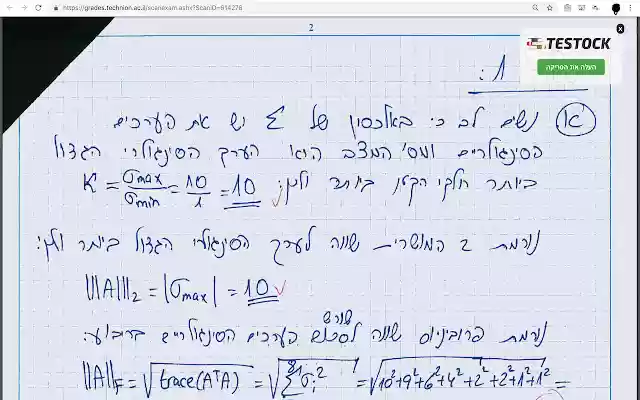 https://grades.technion.ac.il/scanexam.ashx?ScanID=614276
2
TESTOCK
העלה את הסריקה
1:
א) נשים לב כי באלכסון של Σ יש את הערכים
הסינגולריים ומס' המצב הוא הערך הסינגולרי הגדול
ביותר חלקי הקטן ביותר ולכן: K = σmax/σmin = 10/1 = 10
נורמת 2 המושרית שווה לערך הסינגולרי הגדול ביותר ולכן:
|||A|||₂ = |σmax| = 10
נורמת פרוביניוס שווה לשורש סכום הערכים הסינגולריים בריבוע:
||A||F = √trace(AᵀA) = √Σσᵢ² = √10²+9²+6²+4²+2²+2²+1²+1² =